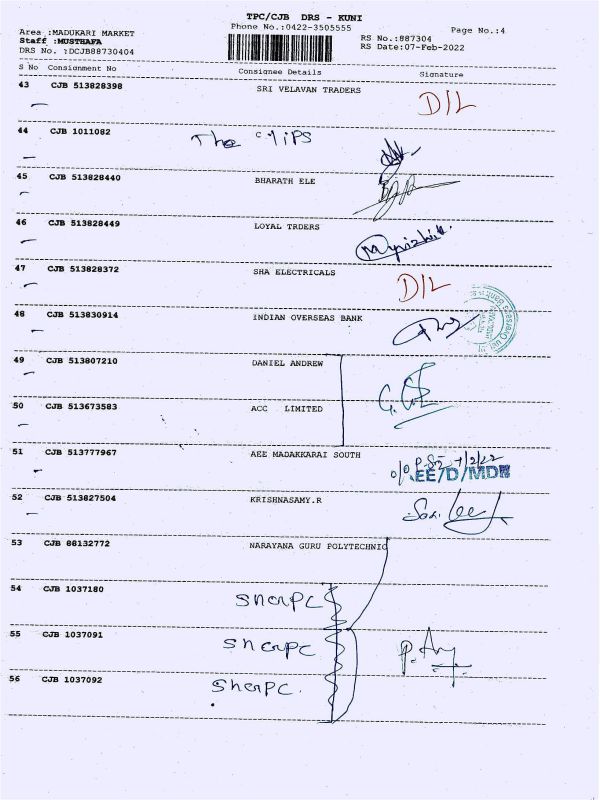 TPC/CJB DRS - KUNI
Phone No.:0422-3505555
Page No.:4
Area :MADUKARI MARKET
Staff :MUSTHAFA
DRS No. :DCJB88730404
RS No.:887304
RS Date:07-Feb-2022
S No Consignment No Consignee Details Signature
43 CJB 513828398 SRI VELAVAN TRADERS D/L
44 CJB 1011082 The
45 CJB 513828440 BHARATH ELE
46 CJB 513828449 LOYAL TRDERS
47 CJB 513828372 SHA ELECTRICALS D/L
48 CJB 513830914 INDIAN OVERSEAS BANK
49 CJB 513807210 DANIEL ANDREW
50 CJB 513673583 ACC LIMITED
51 CJB 513777967 AEE MADAKKARAI SOUTH
AEE/D/MDK
52 CJB 513827504 KRISHNASAMY.R
53 CJB 86132772 NARAYANA GURU POLYTECHNIC
54 CJB 1037180
55 CJB 1037091
56 CJB 1037092